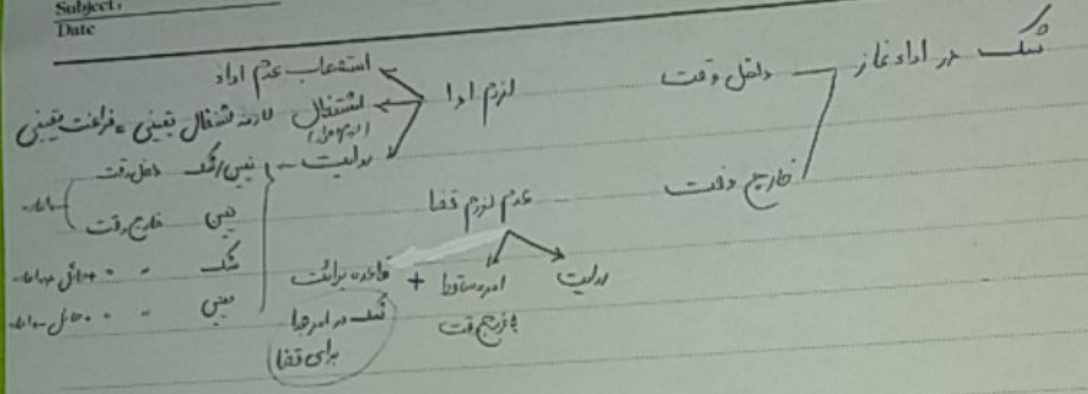 Subject:
Date
شک در اداء نماز
داخل وقت
لزوم ادا
استصحاب عدم اداء
اشتغال لازمه اشتغال یقینی = فراغت یقینی
روایت
یقین/شک داخل وقت
یقین خارج وقت
شک " "
یقین " "
خارج وقت
عدم لزوم قضا
روایت
امر ساقط
+ قاعده برائت
شک در امر جدا
برای قضا